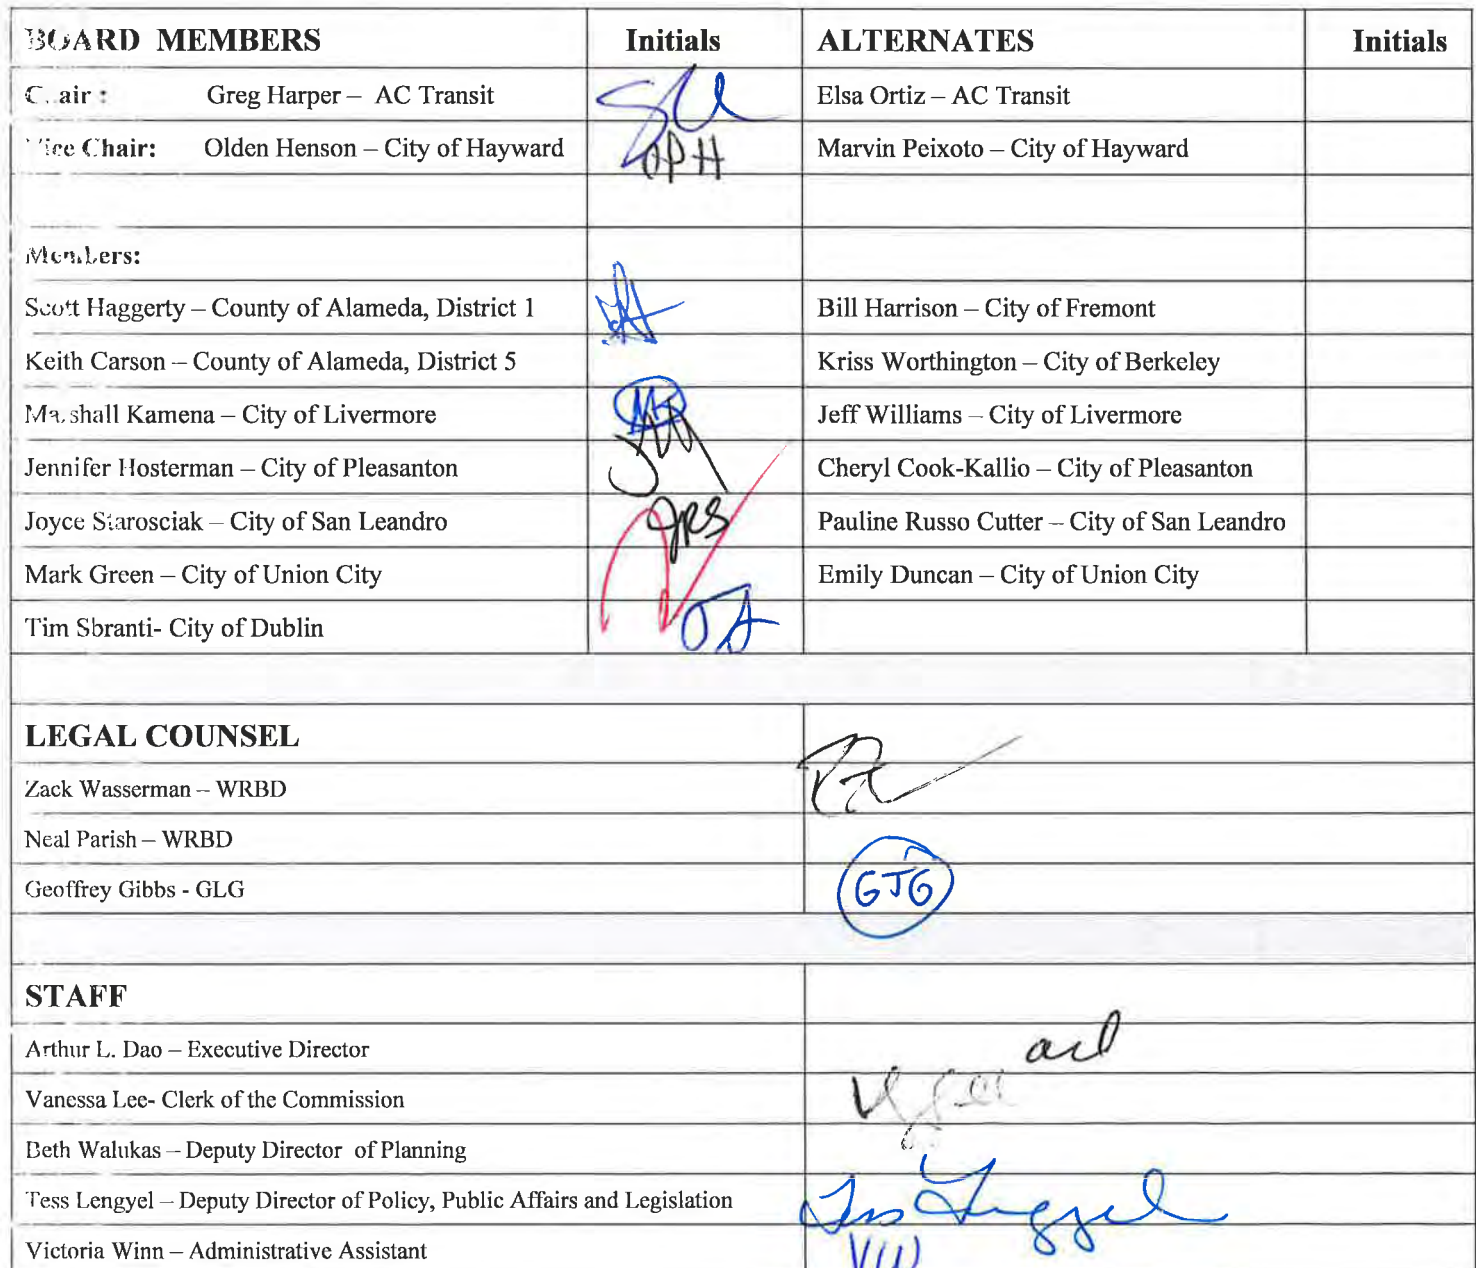 BOARD MEMBERS Initials ALTERNATES Initials
Chair : Greg Harper – AC Transit Elsa Ortiz – AC Transit
Vice Chair: Olden Henson – City of Hayward OPH Marvin Peixoto – City of Hayward
Members:
Scott Haggerty – County of Alameda, District 1 Bill Harrison – City of Fremont
Keith Carson – County of Alameda, District 5 Kriss Worthington – City of Berkeley
Marshall Kamena – City of Livermore MK Jeff Williams – City of Livermore
Jennifer Hosterman – City of Pleasanton Cheryl Cook-Kallio – City of Pleasanton
Joyce Starosciak – City of San Leandro JRS Pauline Russo Cutter – City of San Leandro
Mark Green – City of Union City Emily Duncan – City of Union City
Tim Sbranti- City of Dublin
LEGAL COUNSEL
Zack Wasserman – WRBD
Neal Parish – WRBD
Geoffrey Gibbs - GLG GJG
STAFF
Arthur L. Dao – Executive Director ald
Vanessa Lee- Clerk of the Commission
Beth Walukas – Deputy Director of Planning
Tess Lengyel – Deputy Director of Policy, Public Affairs and Legislation Tess Lengyel
Victoria Winn – Administrative Assistant VW